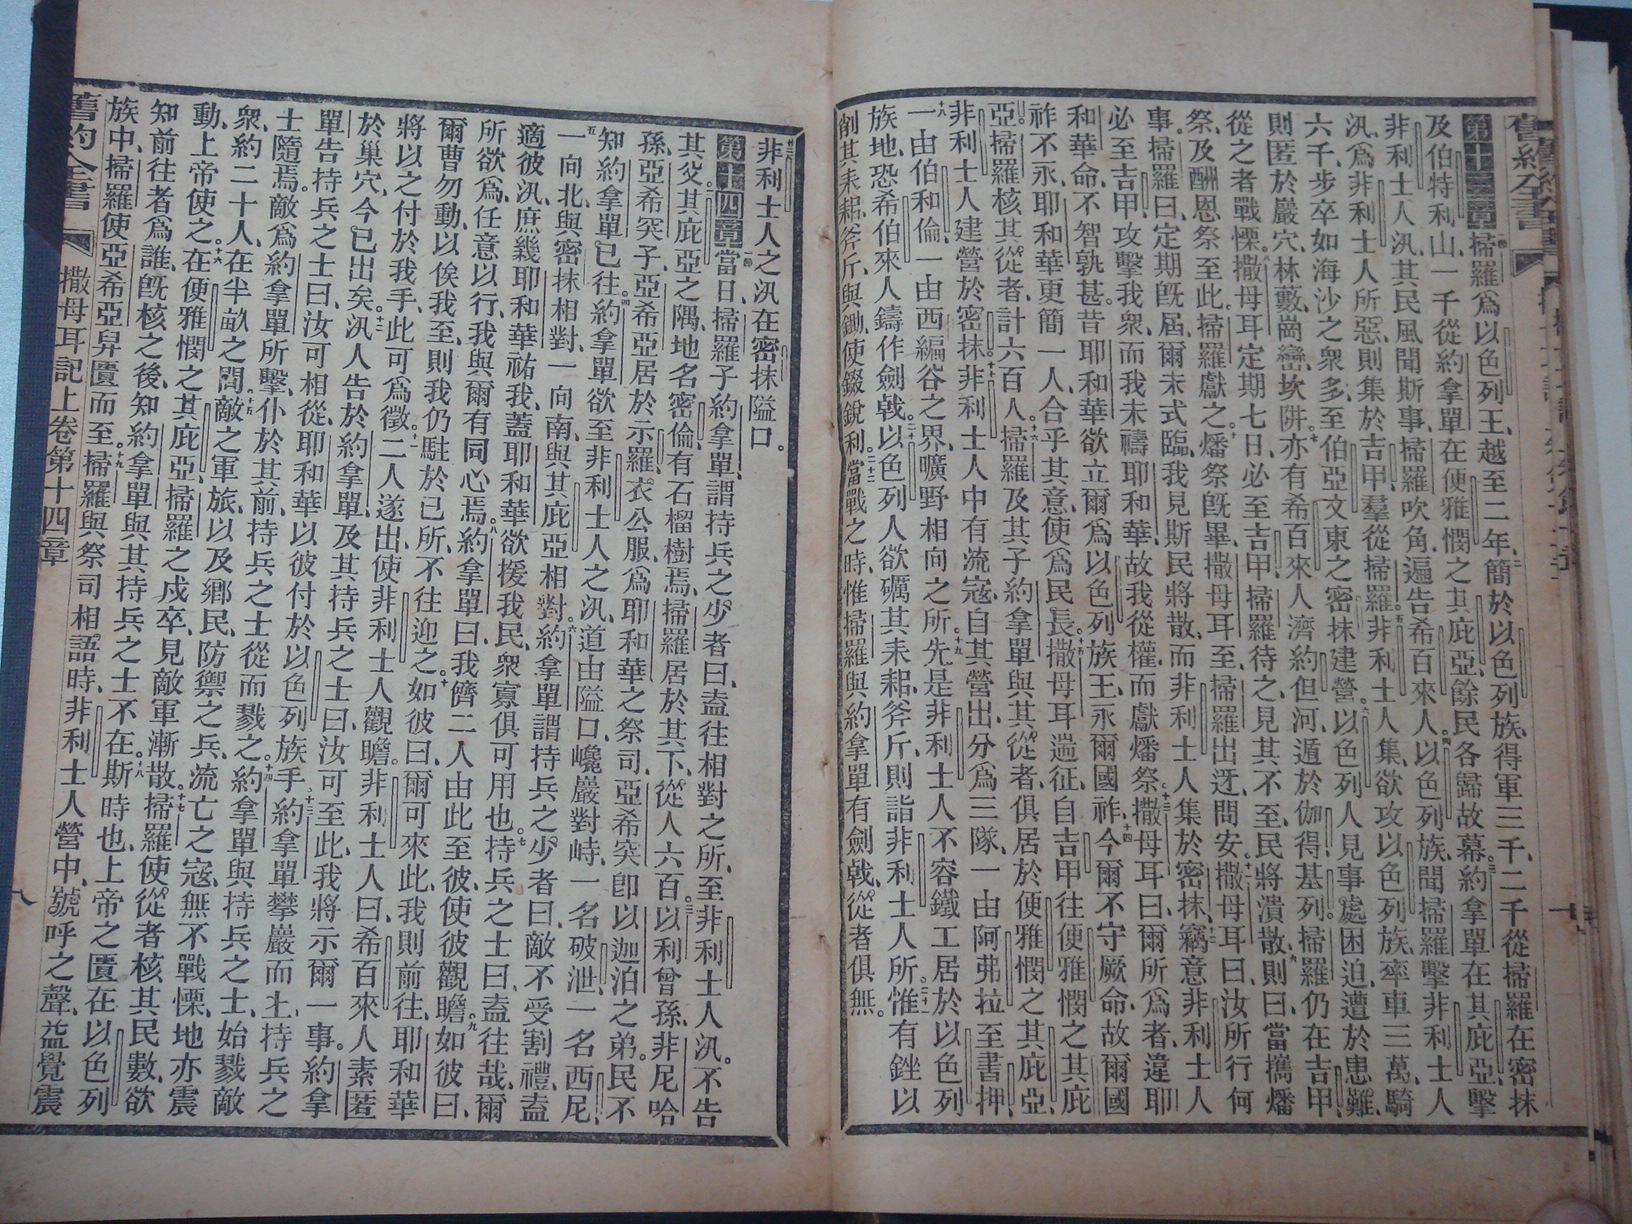 舊約全書
第十三章掃羅爲以色列王越至二年簡於以色列族得軍三千二千從掃羅在密抹
及伯特利山一千從約拿單在便雅憫之其庇亞餘民各歸故幕約拿單在其庇亞擊
非利士人汛其民風聞斯事掃羅吹角遍告希百來人以色列族聞掃羅擊非利士人
汛爲非利士人所惡則集於吉甲羣從掃羅非利士人集欲攻以色列族率車三萬騎
六千步卒如海沙之衆多至伯亞文東之密抹建營以色列人見事處困迫遭於患難
則匿於巖穴林藪崗巒坎阱亦有希百來人濟約但河遁於伽得基列掃羅仍在吉甲
從之者戰慄撒母耳定期七日必至吉甲掃羅待之見其不至民將潰散則曰當攜燔
祭及酬恩祭至此掃羅獻之燔祭旣畢撒母耳至掃羅出迓問安撒母耳曰汝所行何
事掃羅曰定期旣屆爾未式臨我見斯民將散而非利士人集於密抹竊意非利士人
必至吉甲攻擊我衆而我未禱耶和華故我從權而獻燔祭撒母耳曰爾所爲者違耶
和華命不智孰甚昔耶和華欲立爾爲以色列族王永爾國祚今爾不守厥命故爾國
祚不永耶和華更簡一人合乎其意使爲民長撒母耳遄征自吉甲往便雅憫之其庇
亞掃羅核其從者計六百人掃羅及其子約拿單與其從者俱居於便雅憫之其庇亞
非利士人建營於密抹非利士人中有流寇自其營出分爲三隊一由阿弗拉至書押
一由伯和倫一由西編谷之界曠野相向之所先是非利士人不容鐵工居於以色列
族地恐希伯來人鑄作劍戟以色列人欲礪其耒耜斧斤則詣非利士人所惟有銼以
削其耒耜斧斤與鋤使錣銳利當戰之時惟掃羅與約拿單有劍戟從者俱無
非利士人之汛在密抹隘口
第十四章當日掃羅子約拿單謂持兵之少者曰盍往相對之所至非利士人汛不告
其父其庇亞之隅地名密倫有石榴樹焉掃羅居於其下從人六百以利曾孫非尼哈
孫亞希突子亞希亞居於示羅衣公服爲耶和華之祭司亞希突卽以迦泊之弟民不
知約拿單已往約拿單欲至非利士人之汛道由隘口巉巖對峙一名破泄一名西尼
一向北與密抹相對一向南與其庇亞相對約拿單謂持兵之少者曰敵不受割禮盍
適彼汛庶幾耶和華祐我蓋耶和華欲援我民衆寡俱可用也持兵之士曰盍往哉爾
所欲爲任意以行我與爾有同心焉約拿單曰我儕二人由此至彼使彼觀瞻如彼曰
爾曹勿動以俟我至則我仍駐於已所不往迎之如彼曰爾可來此我則前往耶和華
將以之付於我手此可爲徵二人遂出使非利士人觀瞻非利士人曰希百來人素匿
於巢穴今已出矣汛人告於約拿單及其持兵之士曰汝可至此我將示爾一事約拿
單告持兵之士曰汝可相從耶和華以彼付於以色列族手約拿單攀巖而上持兵之
士隨焉敵爲約拿單所擊仆於其前持兵之士從而戮之約拿單與持兵之士始戮敵
衆約二十人在半畝之間敵之軍旅以及鄉民防禦之兵流亡之寇無不戰慄地亦震
動上帝使之在便雅憫之其庇亞掃羅之戍卒見敵軍漸散掃羅使從者核其民數欲
知前往者爲誰旣核之後知約拿單與其持兵之士不在斯時也上帝之匱在以色列
族中掃羅使亞希亞舁匱而至掃羅與祭司相語時非利士人營中號呼之聲益覺震
舊約全書 撒母耳記上卷第十四章 八